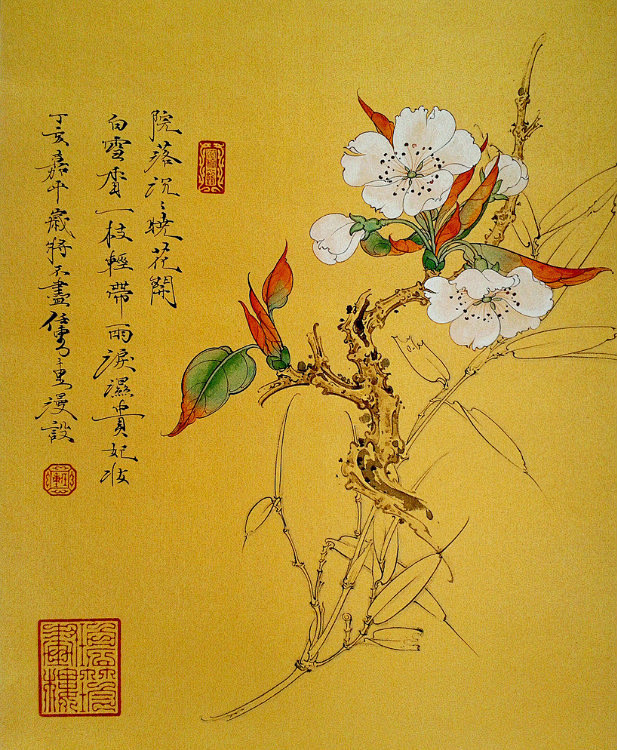 院落沉〻曉花開
白雪香一枝輕帶雨淚濕貴妃妝
丁亥嘉平歲將不盡漫設